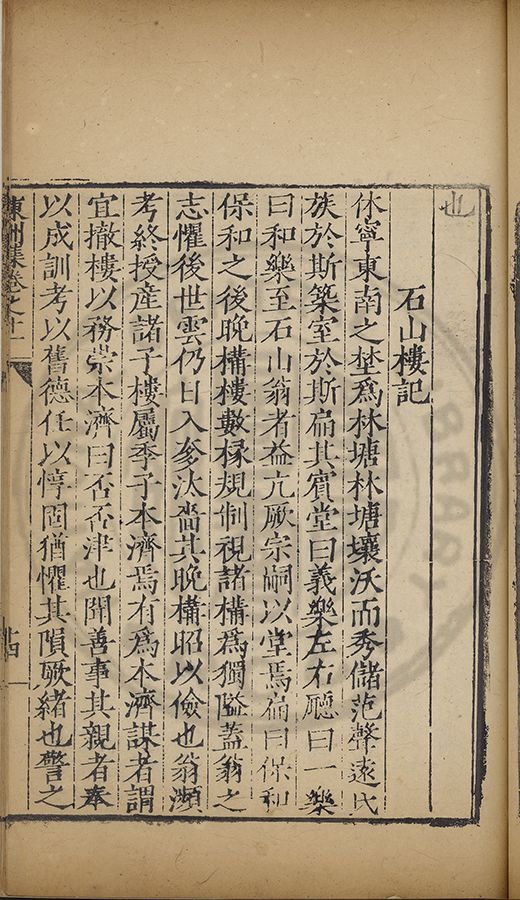 也
石山樓記
休寧東南之埜爲林塘林塘壤沃而秀儲范聲遠氏
族於斯築室於斯扁其賓堂曰義樂左右廳曰一樂
曰和樂至石山翁者益亢厥宗嗣以堂焉扁曰保和
保和之後晚構樓數椽規制視諸構爲獨隘蓋翁之
志懼後世雲仍日入奓汰嗇其晚構昭以儉也翁瀕
考終授產諸子樓屬季子本濟焉有爲本濟謀者謂
宜撤樓以務崇本濟曰否否津也聞善事其親者奉
以成訓考以舊德任以惇固猶懼其隕厥緒也警之
東洲集卷之十一
十四